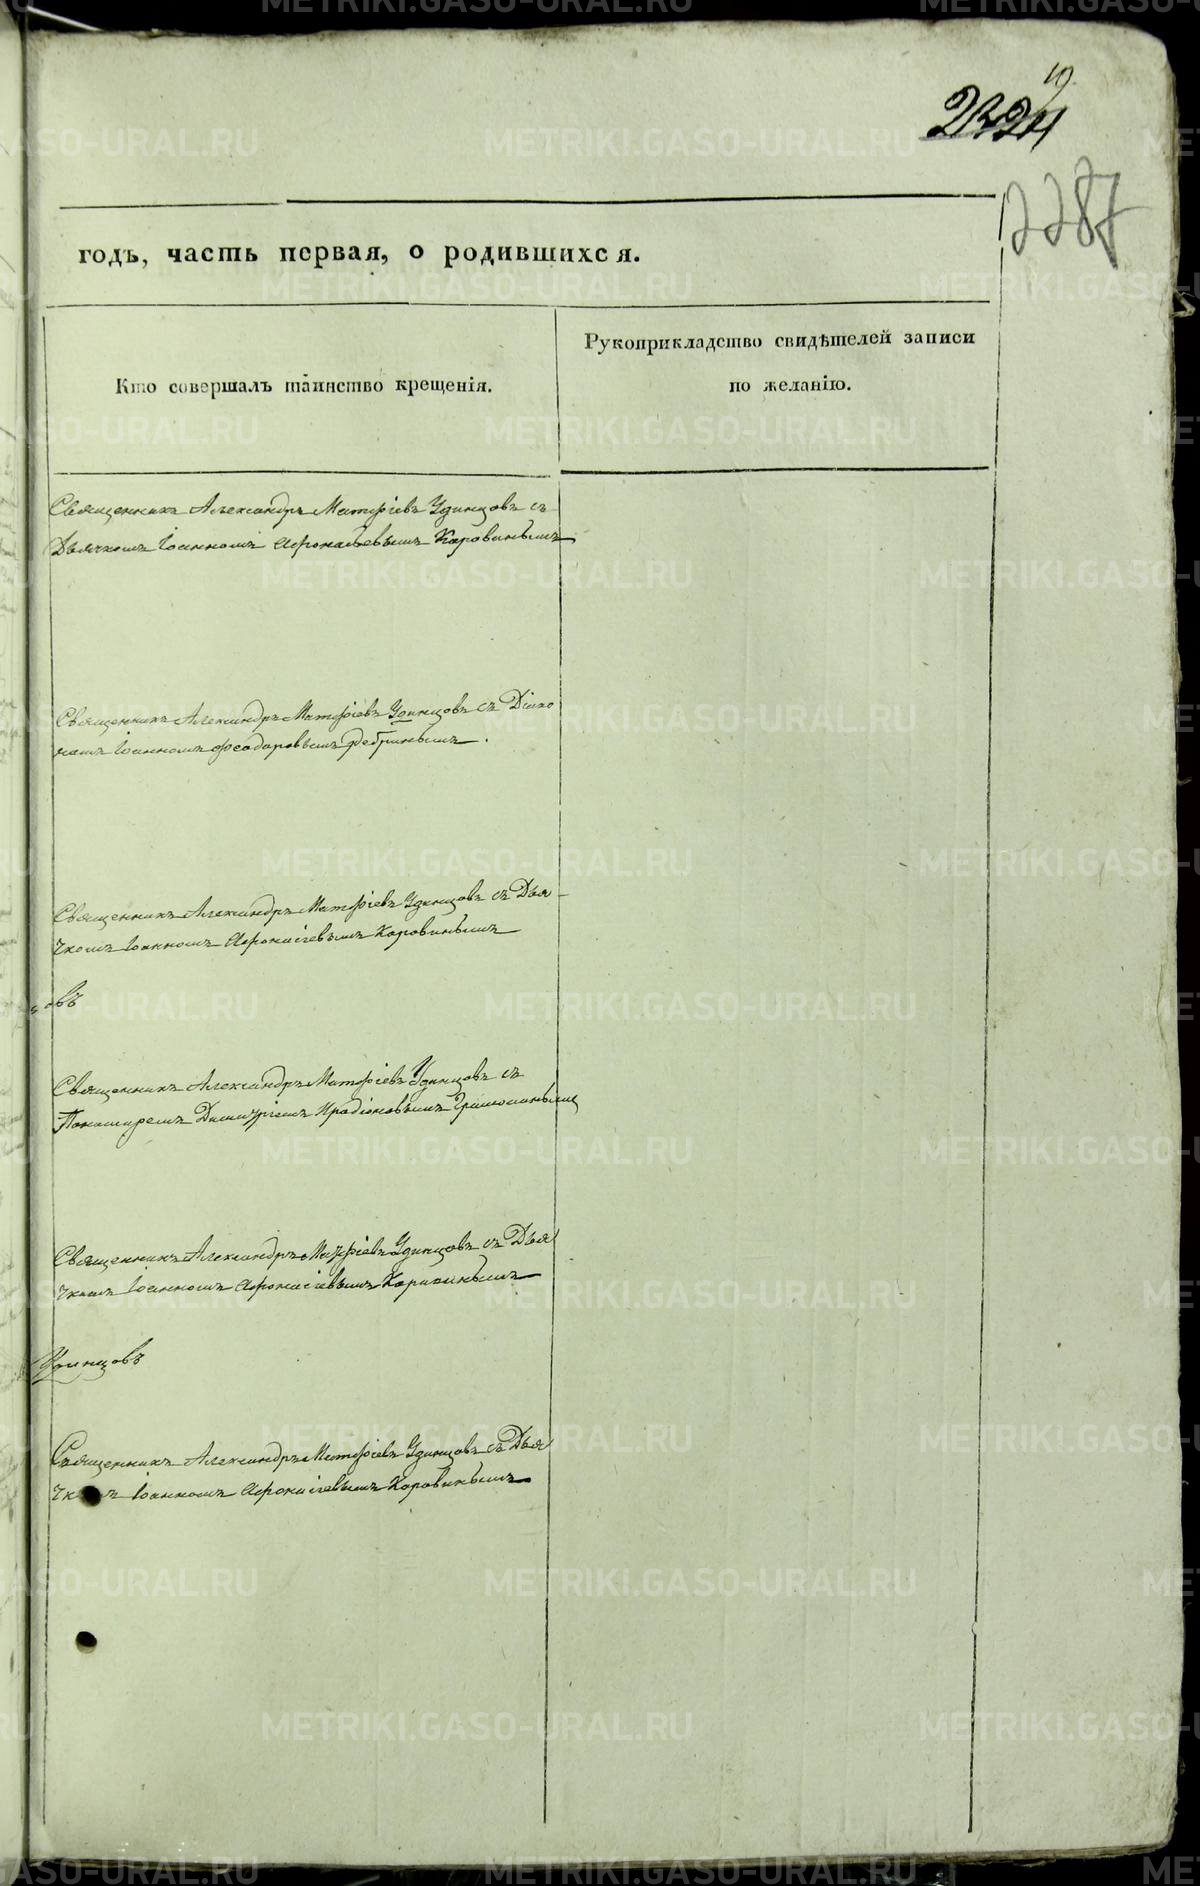 19
2287
годъ, часть первая, о родившихся.
Кто совершалъ таинство крещенія.
Рукоприкладство свидѣтелей записи
по желанію.
Священникъ Александръ Матфіевъ Удинцовъ съ
Дьячкомъ Іоанномъ Афонасьевымъ Коровинымъ
Священникъ Александръ Матфіевъ Удинцовъ съ Діако
номъ Іоанномъ Феодоровымъ
Священникъ Александръ Матфіевъ Удинцовъ съ Дья-
чкомъ Іоанномъ Афонасіевымъ Коровинымъ
овъ
Священникъ Александръ Матфіевъ Удинцовъ съ
Понамаремъ Димитріемъ Иродіоновымъ
Священникъ Александръ Матфіевъ Удинцовъ съ Дья
чкомъ Іоанномъ Афонасіевымъ Коровинымъ
Удинцовъ
Священникъ Александръ Матфіевъ Удинцовъ съ Дья
Іоанномъ Афонасіевымъ Коровинымъ
METRIKI.GASO-URAL.RU